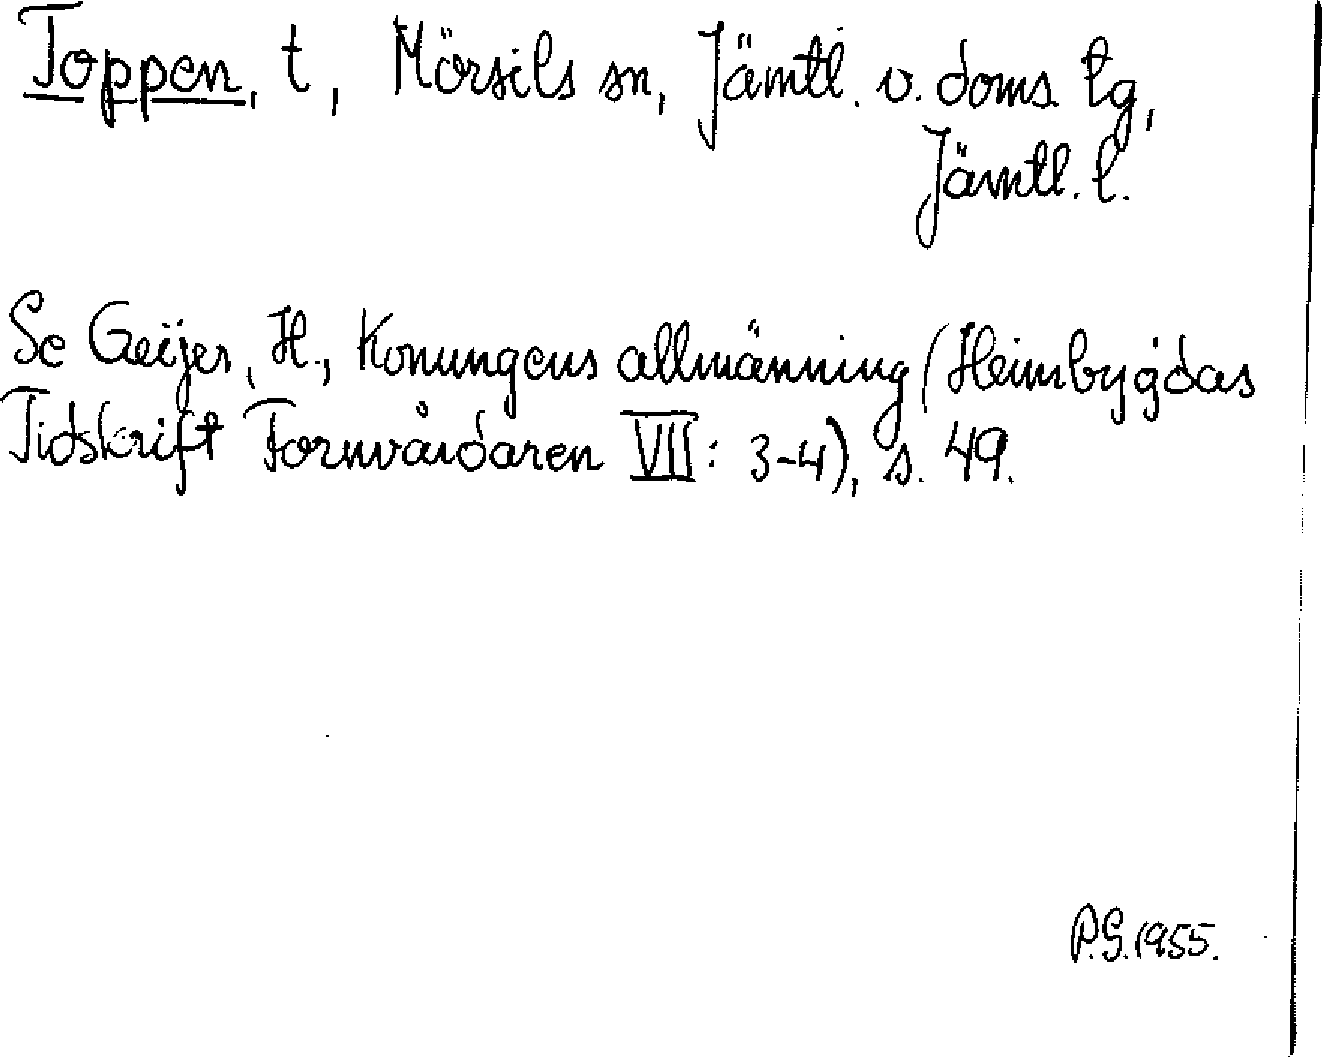 Toppen, t, Mörsils sn, Jämtl. v. doms. tg,
Jämtl. l.
Se Geijer, H., Konungens allmänning (Heimbygdas
Tidskrift Fornvårdaren VII: 3-4), s. 49.
P.G. 1955.